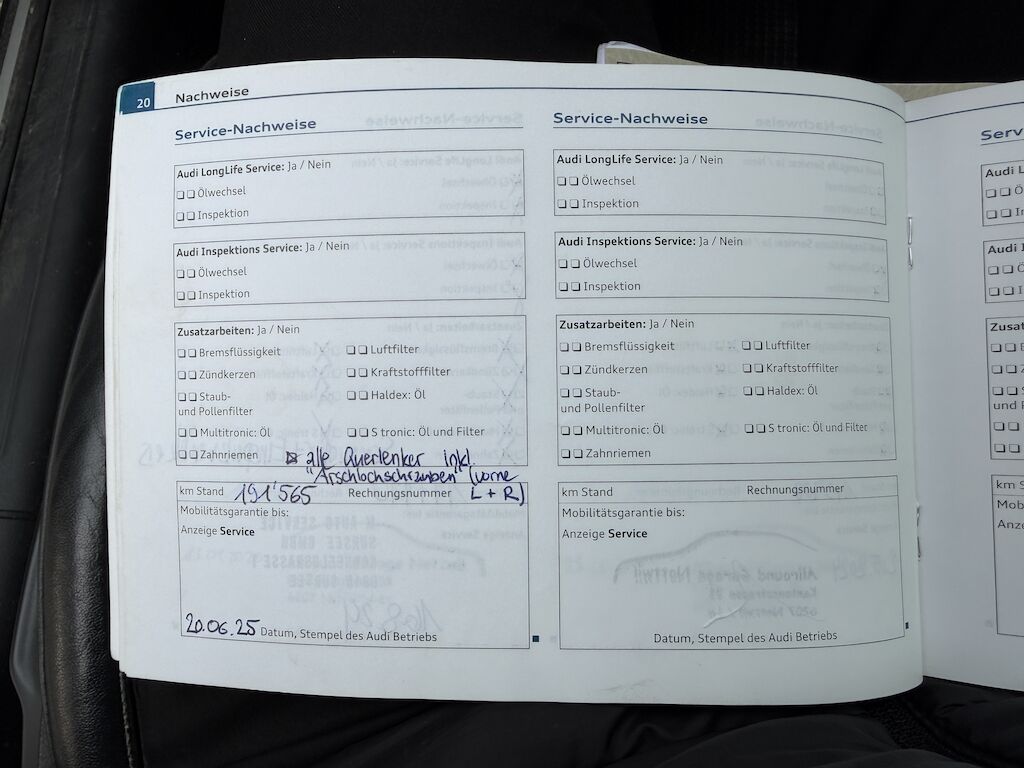 20 Nachweise
Service-Nachweise
Audi LongLife Service: Ja / Nein
Ölwechsel
Inspektion
Audi Inspektions Service: Ja / Nein
Ölwechsel
Inspektion
Zusatzarbeiten: Ja / Nein
Bremsflüssigkeit Luftfilter
Zündkerzen Kraftstofffilter
Staub- Haldex: Öl
und Pollenfilter
Multitronic: Öl S tronic: Öl und Filter
Zahnriemen alle Querlenker inkl.
"Arschlochschrauben" (vorne
L + R)
km Stand 191'565 Rechnungsnummer
Mobilitätsgarantie bis:
Anzeige Service
20.06.25 Datum, Stempel des Audi Betriebs
Service-Nachweise
Audi LongLife Service: Ja / Nein
Ölwechsel
Inspektion
Audi Inspektions Service: Ja / Nein
Ölwechsel
Inspektion
Zusatzarbeiten: Ja / Nein
Bremsflüssigkeit Luftfilter
Zündkerzen Kraftstofffilter
Staub- Haldex: Öl
und Pollenfilter
Multitronic: Öl S tronic: Öl und Filter
Zahnriemen
km Stand Rechnungsnummer
Mobilitätsgarantie bis:
Anzeige Service
Datum, Stempel des Audi Betriebs